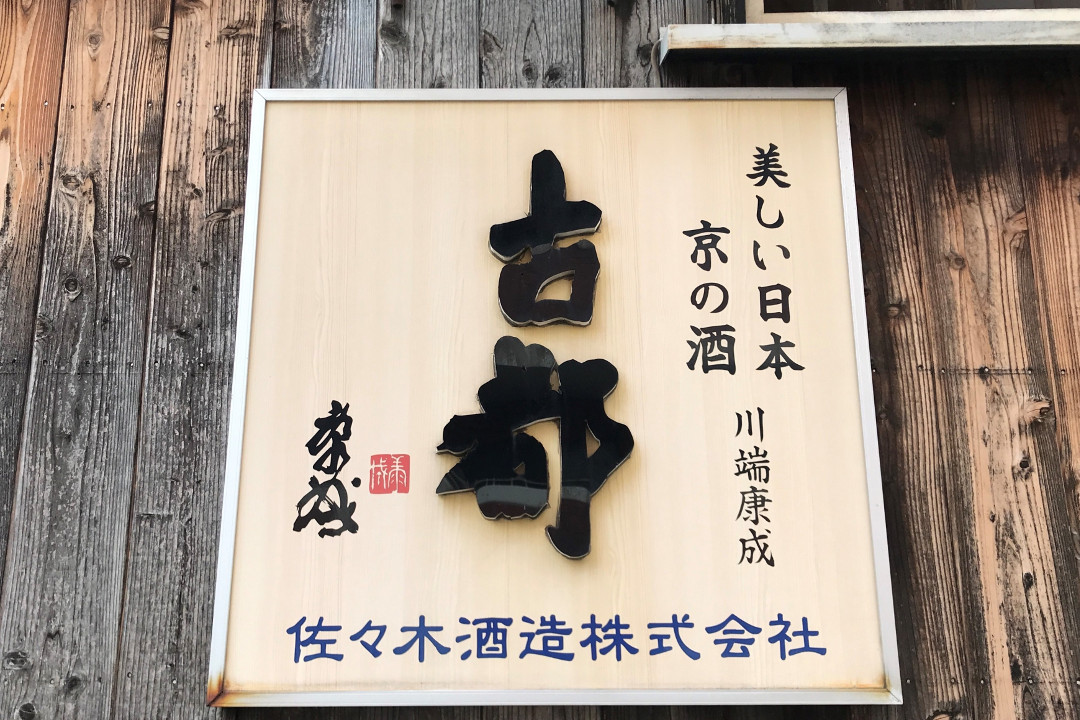 美しい日本
京の酒
川端康成
古都
康成
康成
佐々木酒造株式会社